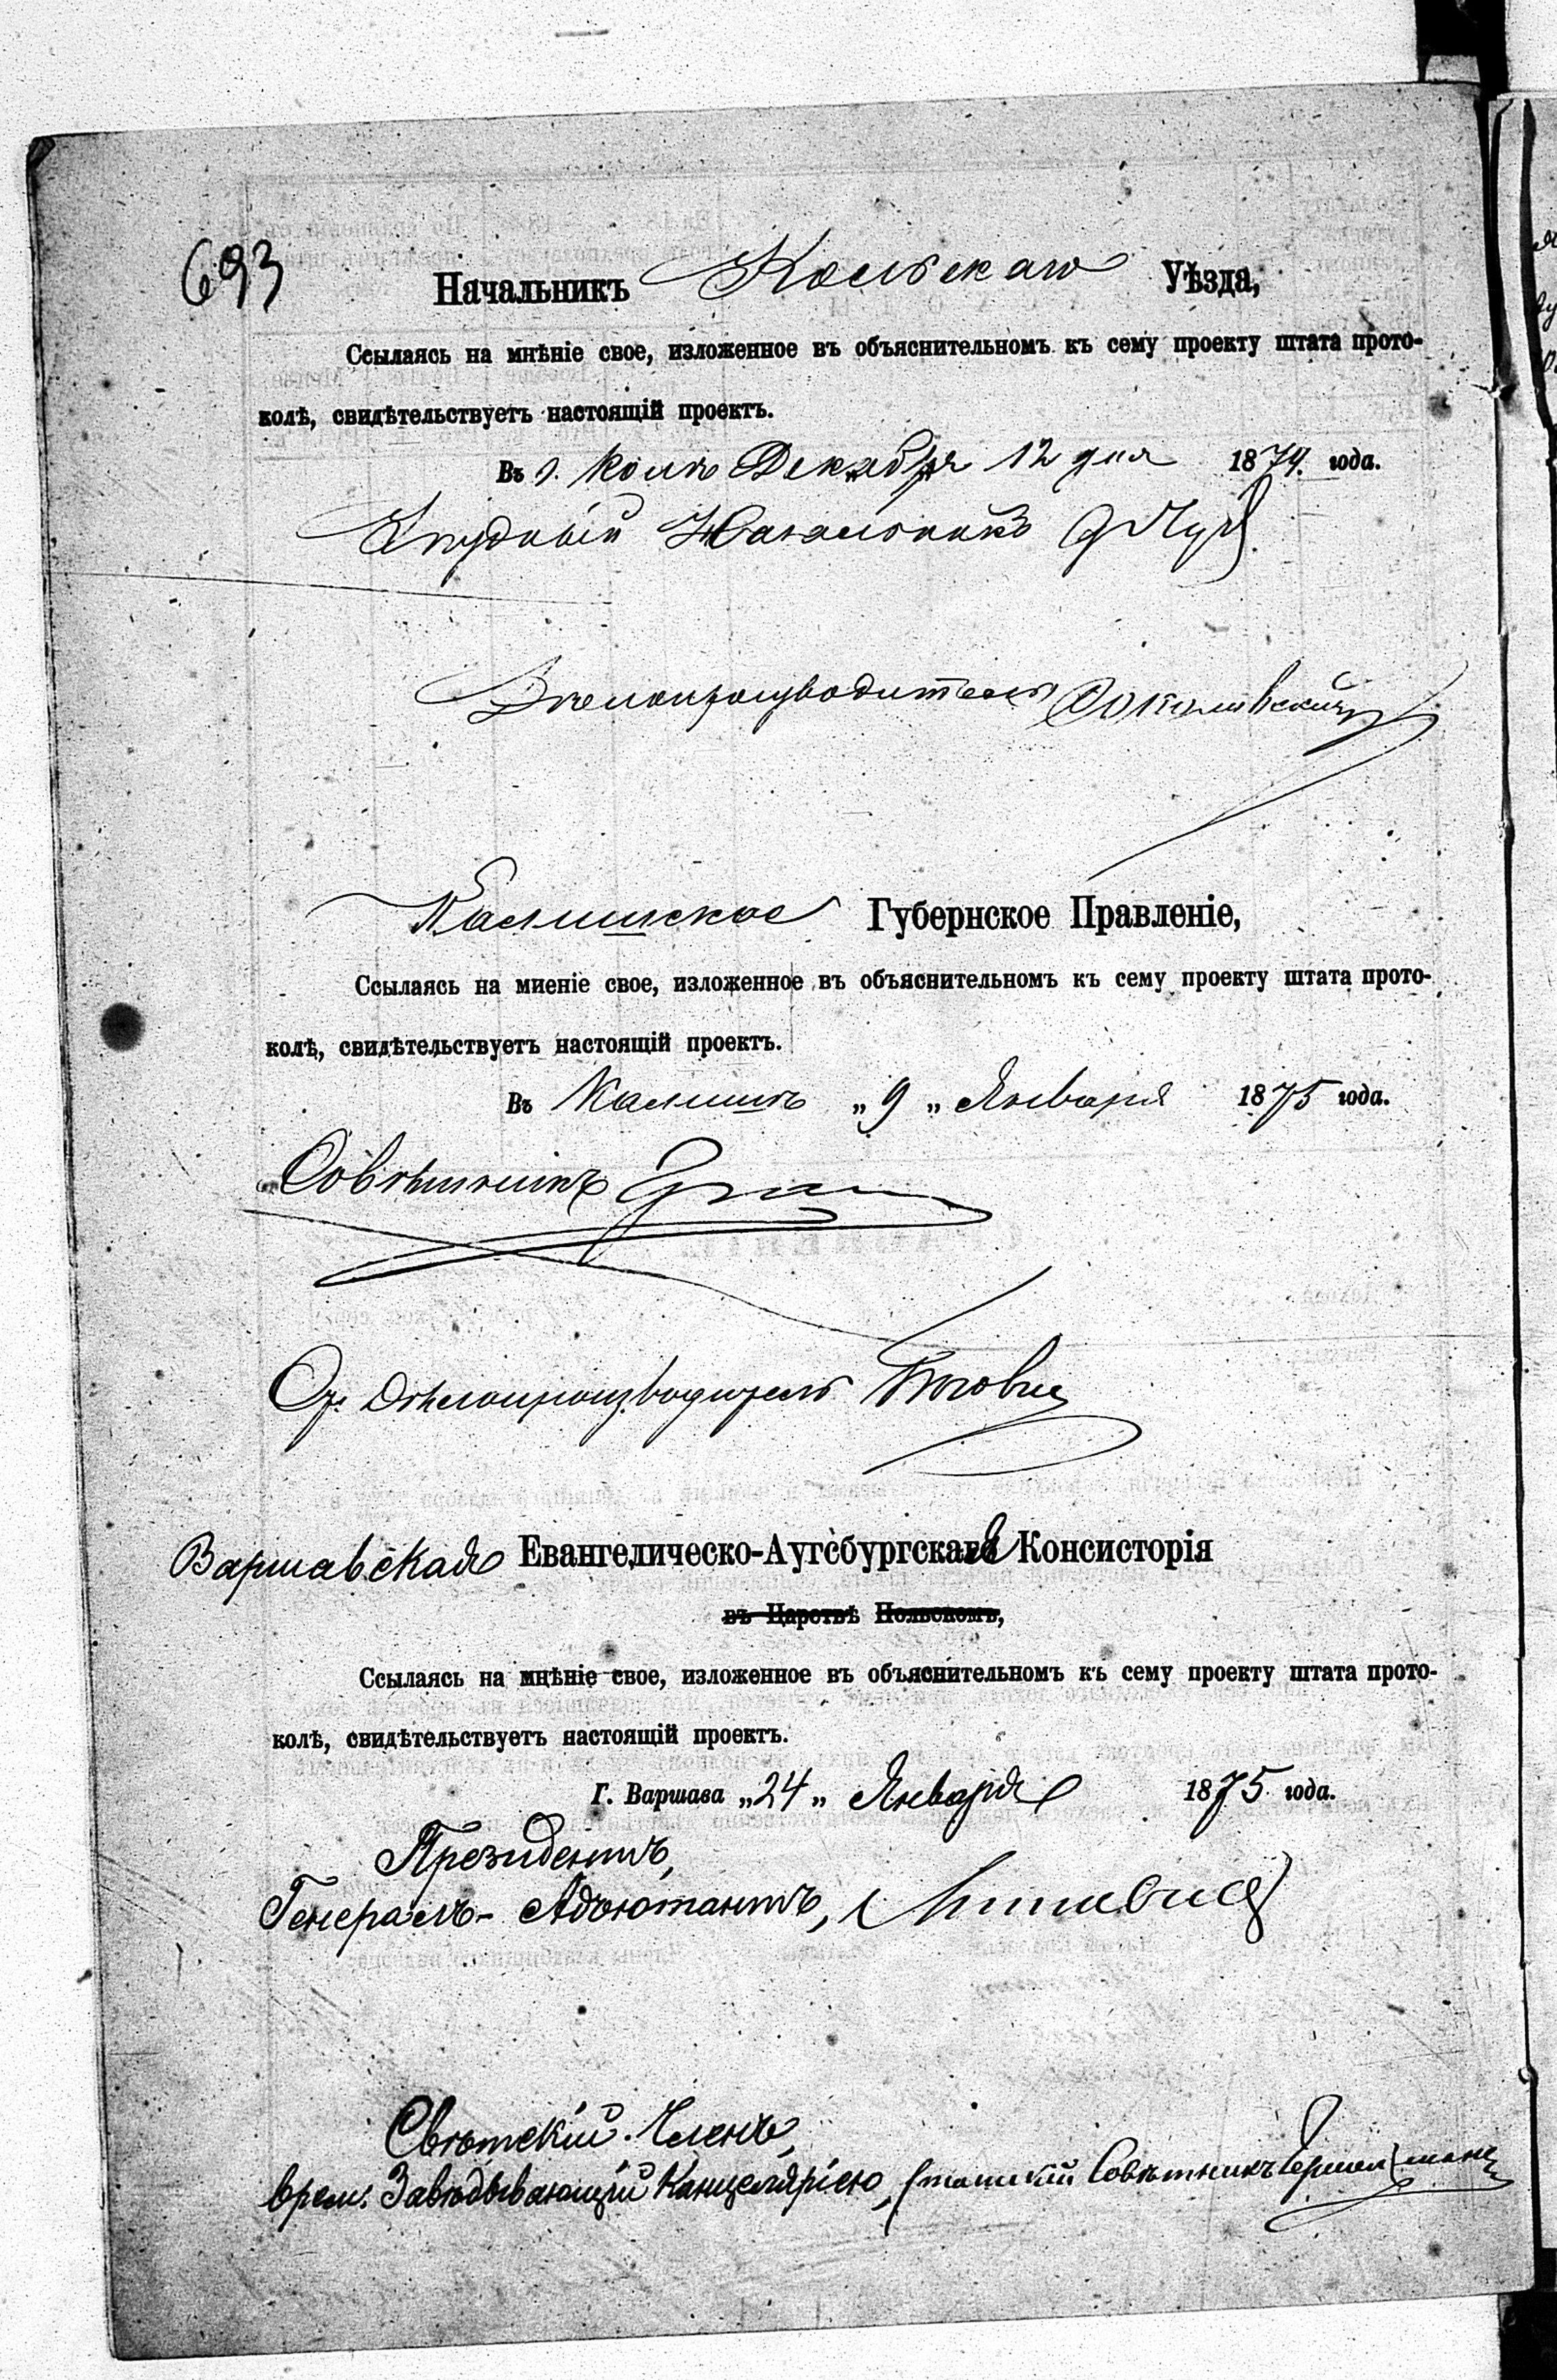 693
Начальникъ Кольскаго Уѣзда,
Ссылаясь на мнѣніе свое, изложенное въ объяснительномъ къ сему проекту штата прото-
колѣ, свидѣтельствуетъ настоящій проектъ.
Въ г. Колѣ Декабря 12 дня 1874 года.
Уѣздный Начальникъ
Дѣлопроизводитель Соколовскій
Калишское Губернское Правленіе,
Ссылаясь на миеніе свое, изложенное въ объяснительномъ къ сему проекту штата прото-
колѣ, свидѣтельствуетъ настоящій проектъ.
Въ Калишѣ „9„ Января 1875 года.
Совѣтникъ
Дѣлопроизводитель
Варшавская Евангелическо-Аугсбургская Консисторія
въ Царствѣ Польскомъ,
Ссылаясь на мнѣніе свое, изложенное въ объяснительномъ къ сему проекту штата прото-
колѣ, свидѣтельствуетъ настоящій проектъ.
Г. Варшава „24„ Января 1875 года.
Президентъ,
Генералъ-Адъютантъ,
Свѣтскій Членъ,
врем. Завѣдывающій Канцеляріею, Статскій Совѣтникъ